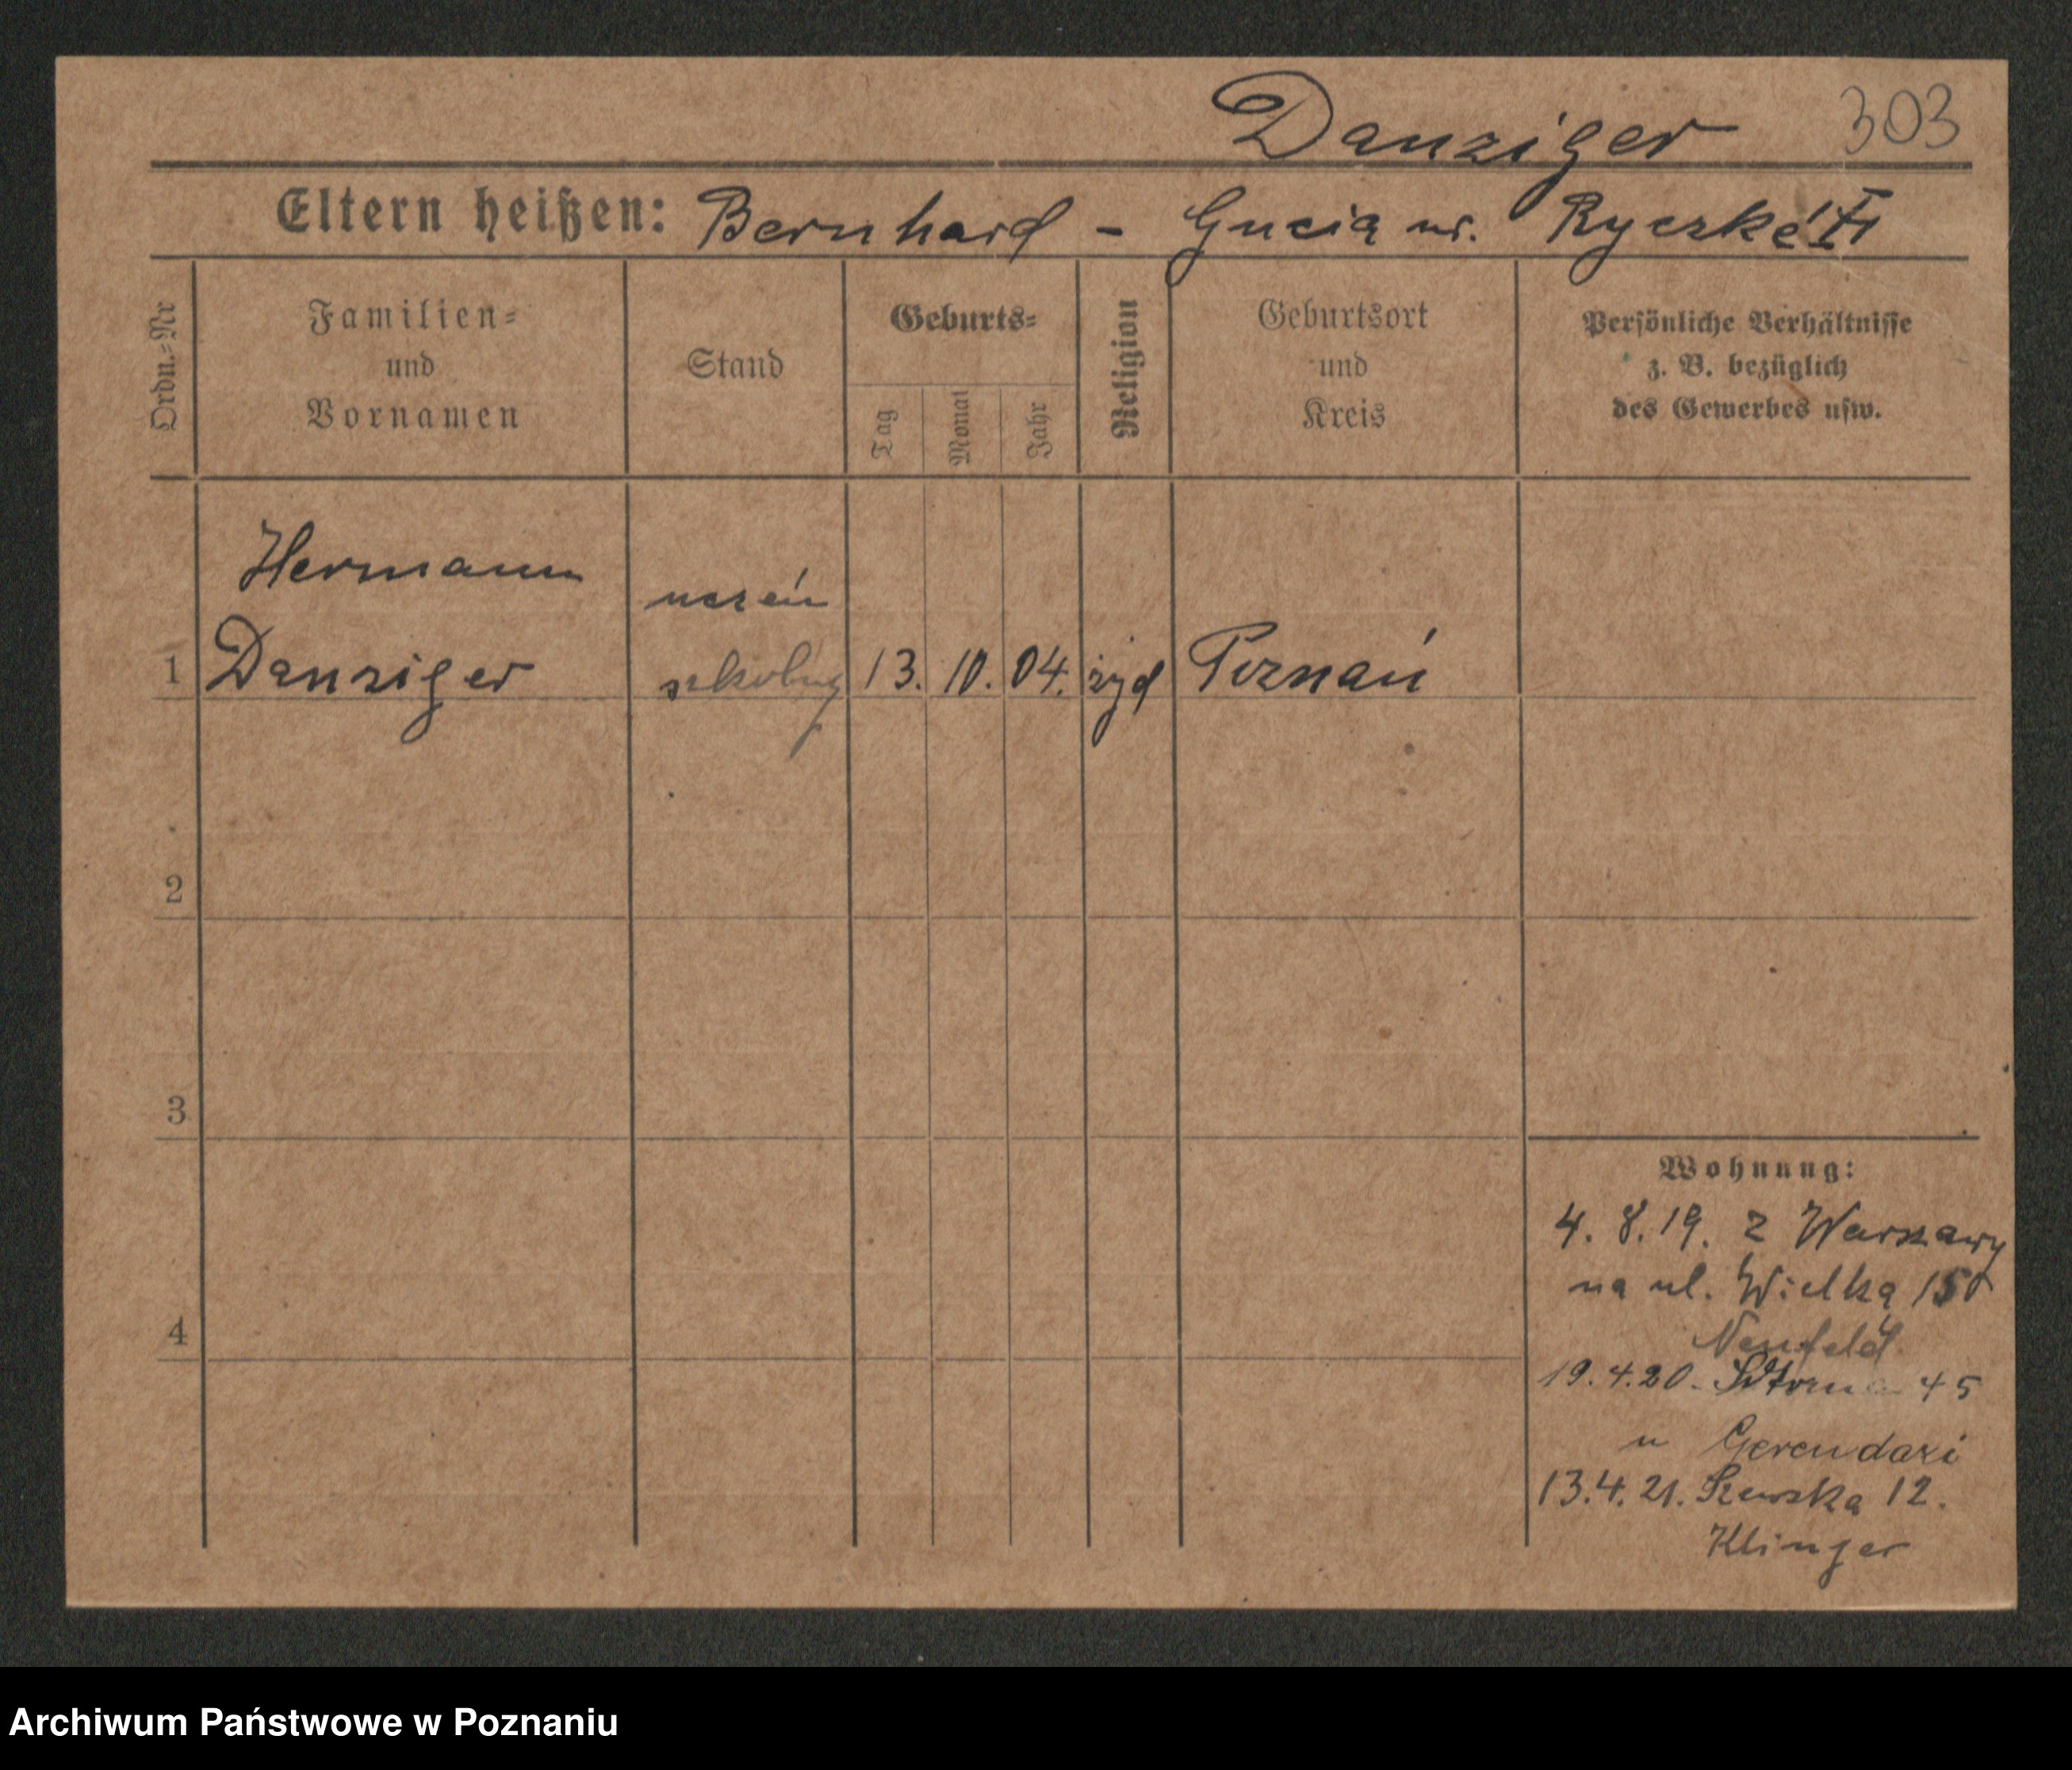 Danziger 303
Eltern heißen: Bernhard - Gucia ur.
Ordn.-Nr
Familien-
und
Vornamen
Stand
Geburts-
Tag
Monat
Jahr
Religion
Geburtsort
und
Kreis
Persönliche Verhältnisse
z. B. bezüglich
des Gewerbes usw.
Hermann
uczeń
1 Danziger szkolny 13. 10. 04. żyd Poznań
2
3
4
Wohnung:
4. 8. 19. z Warszawy
na ul. Wielką
Neufeld
19. 4. 20. 45
u Gerendazi
13. 4. 21. Szewska 12.
Klinger
Archiwum Państwowe w Poznaniu